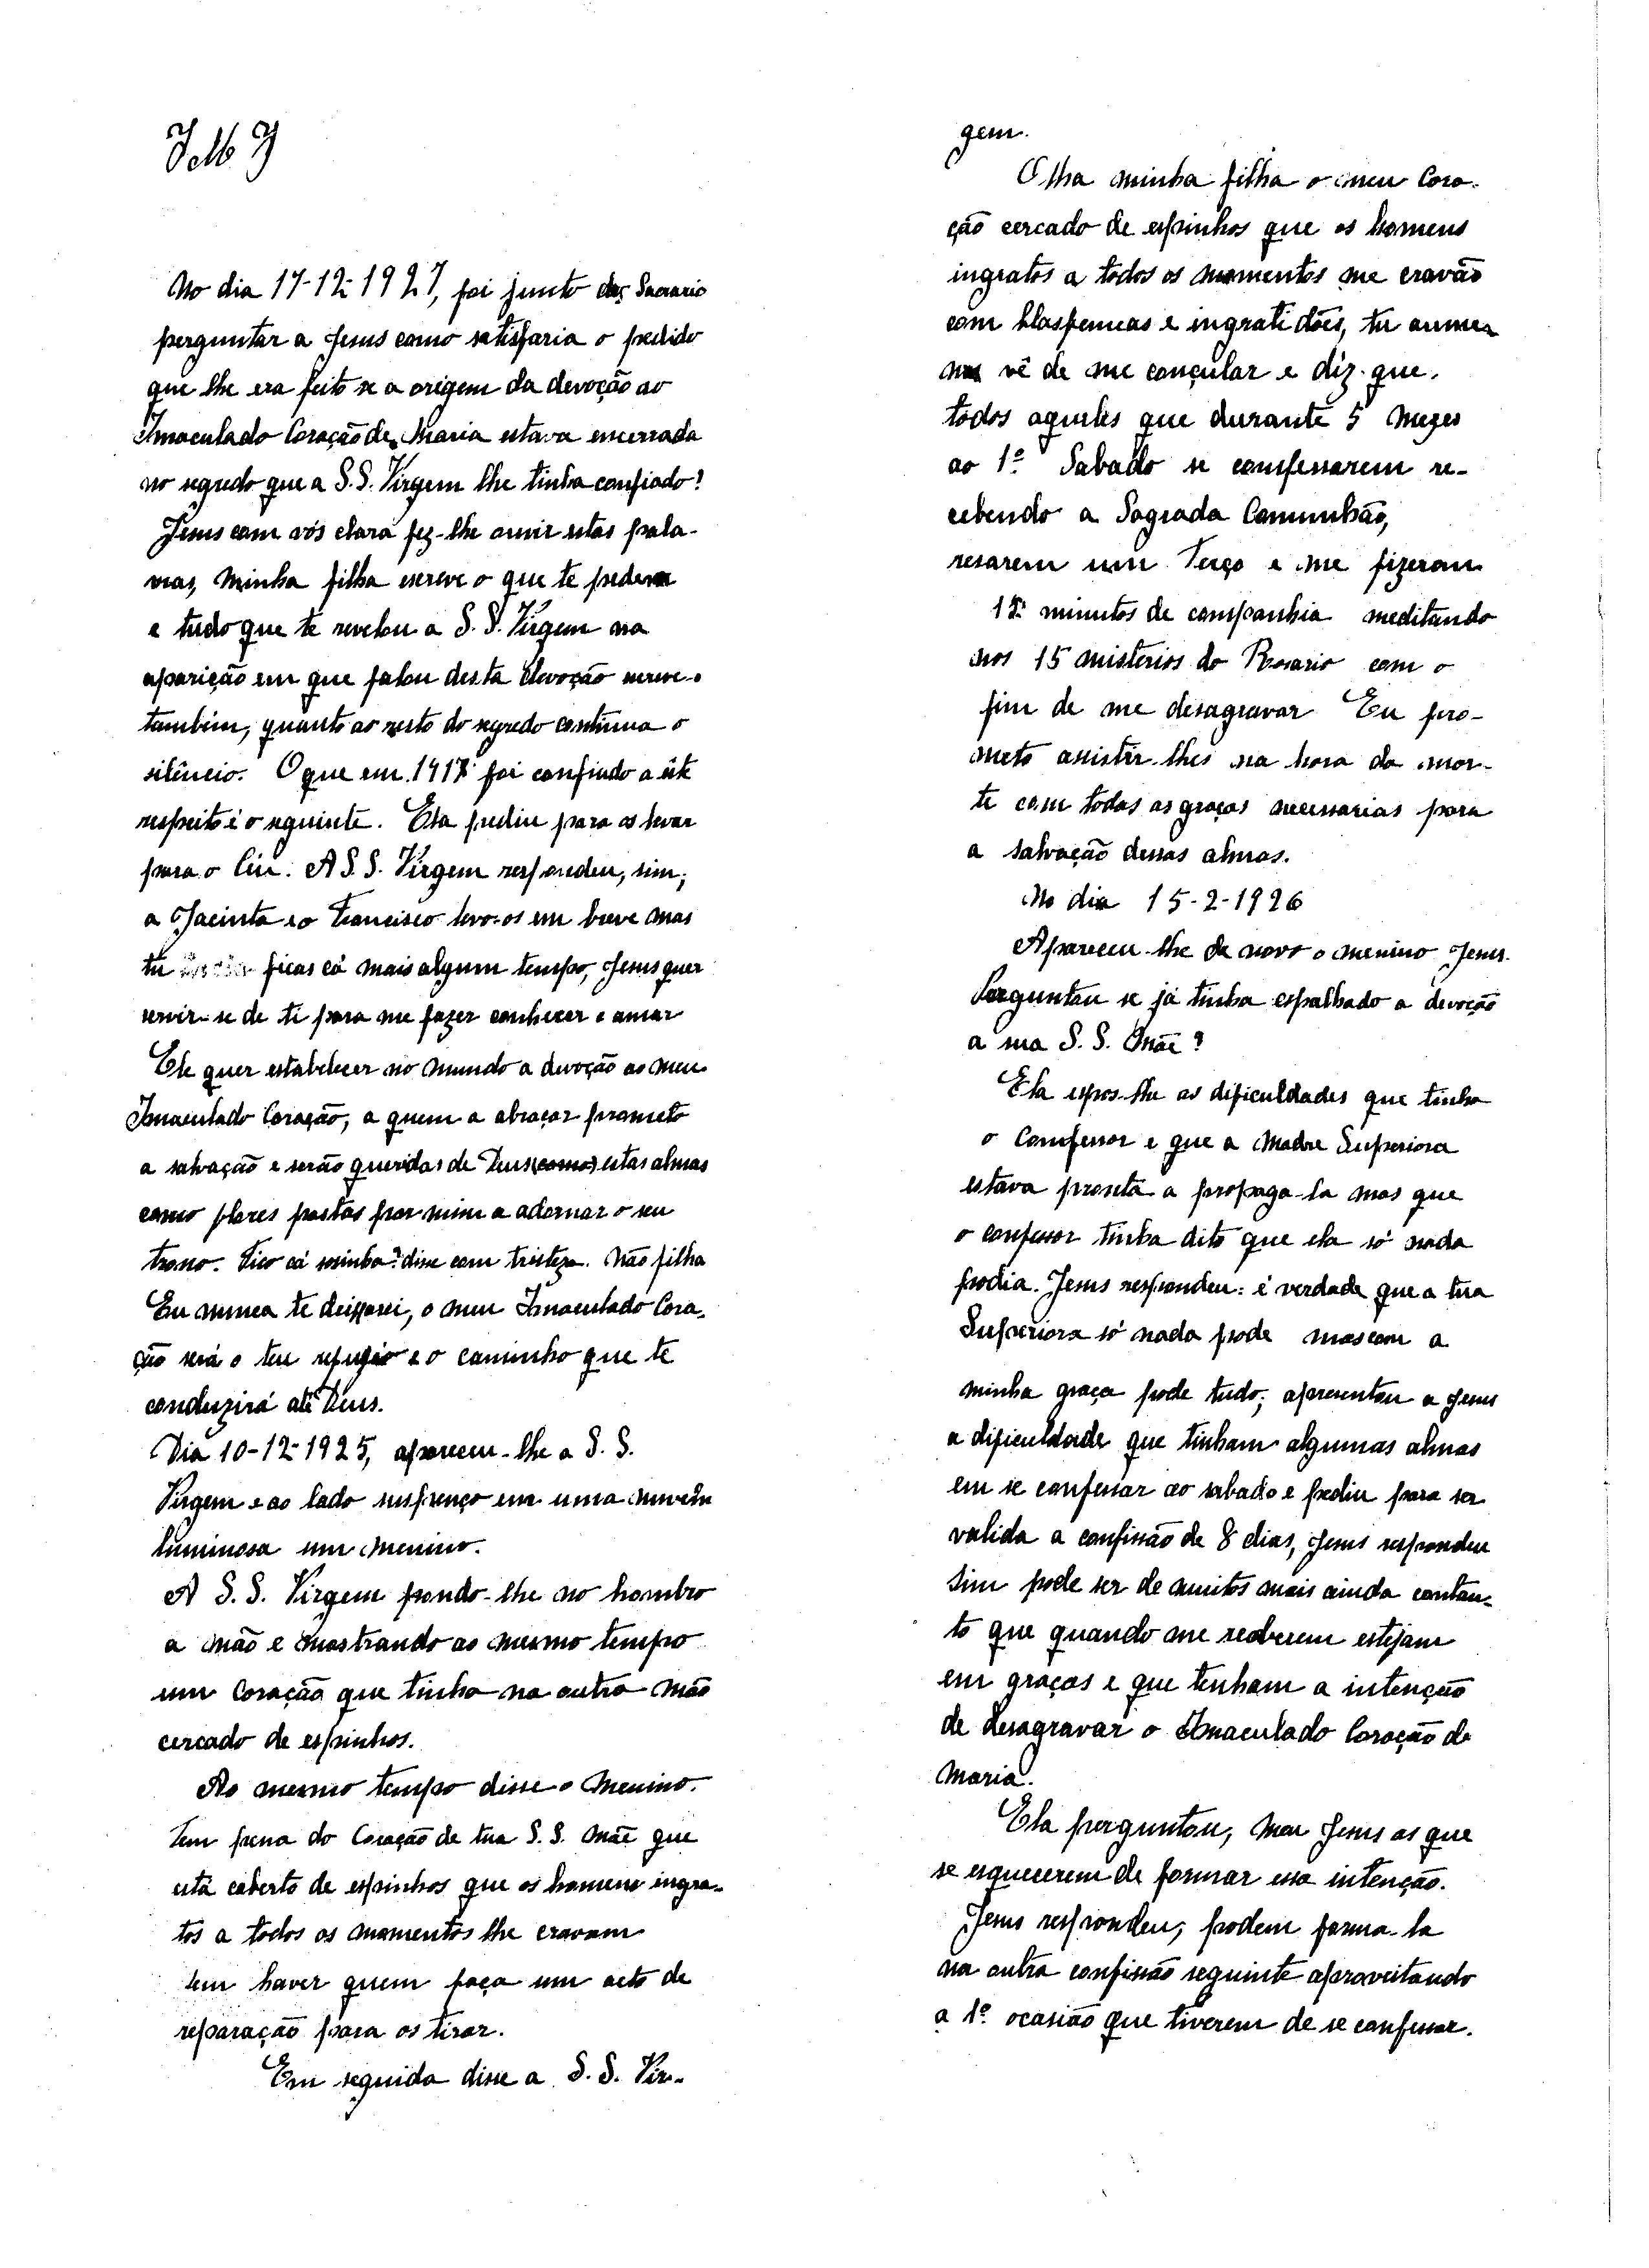 J M J
No dia 17-12-1927, foi junto do Sacrario
perguntar a Jesus como satisfaria o pedido
que lhe era feito se a origem da devoção ao
Imaculado Coração de Maria estava encerrada
no segredo que a S.S. Virgem lhe tinha confiado?
Jesus com vós clara fez-lhe ouvir estas pala-
vras, minha filha escreve o que te pedem
e tudo que te revelou a S. S. Virgem na
aparição em que falou desta devoção escreve-o
também, quanto ao resto do segredo continua o
silêncio. O que em 1917 foi confiado a êste
respeito é o seguinte. Ela pediu para os levar
para o Céu. A S.S. Virgem respondeu, sim,
a Jacinta e o Francisco levo-os em breve mas
tu ficas cá mais algum tempo, Jesus quer
servir-se de ti para me fazer conhecer e amar
Ele quer estabelecer no mundo a devoção ao meu
Imaculado Coração, a quem a abraçar prometo
a salvação e serão queridas de Deus (como) estas almas
como flores postas por mim a adornar o seu
trono. Fico cá sosinha? disse com tristeza. Não filha
Eu nunca te deixarei, o meu Imaculado Cora-
ção será o teu refugio e o caminho que te
conduzirá até Deus.
Dia 10-12-1925, apareceu-lhe a S. S.
Virgem e ao lado suspenço em uma nuvem
luminosa um Menino.
A S. S. Virgem pondo-lhe no hombro
a mão e mostrando ao mesmo tempo
um Coração que tinha na outra mão
cercado de espinhos.
Ao mesmo tempo disse o Menino.
Tem pena do Coração de tua S. S. Mãe que
está coberto de espinhos que os homens ingra-
tos a todos os momentos lhe cravam
sem haver quem faça um acto de
reparação para os tirar.
Em seguida disse a S. S. Vir-
gem.
Olha minha filha o meu Cora-
ção cercado de espinhos que os homens
ingratos a todos os momentos me cravão
com blasfemeas e ingratidões, tu
vê de me conçular e diz que,
todos aqueles que durante 5 mezes
ao 1º Sabado se comfessarem re-
cebendo a Sagrada Comunhão,
resarem um Terço e me fizeram
15 minutos de companhia meditando
nos 15 mistérios do Rosario com o
fim de me desagravar Eu pro-
meto assistir-lhes na hora da mor-
te com todas as graças necessarias para
a salvação dessas almas.
No dia 15-2-1926
Apareceu-lhe de novo o menino Jesus.
Perguntou se já tinha espalhado a devoção
a sua S. S. Mãe?
Ela espos-lhe as dificuldades que tinha
o Comfessor e que a Madre Superiora
estava pronta a propaga-la mas que
o confessor tinha dito que ela só nada
podia. Jesus respondeu: é verdade que a tua
Superiora só nada pode mas com a
minha graça pode tudo; apresentou a Jesus
a dificuldade que tinham algumas almas
em se confessar ao sabado e pediu para ser
valida a confissão de 8 dias, Jesus respondeu
Sim pode ser de muitos mais ainda contan-
to que quando me receberem estejam
em graças e que tenham a intenção
de desagravar o Imaculado Coração de
Maria.
Ela perguntou, Meu Jesus as que
se esquecerem de formar essa intenção.
Jesus respondeu, podem forma-la
na outra confissão seguinte aproveitando
a 1º ocasião que tiverem de se confessar.